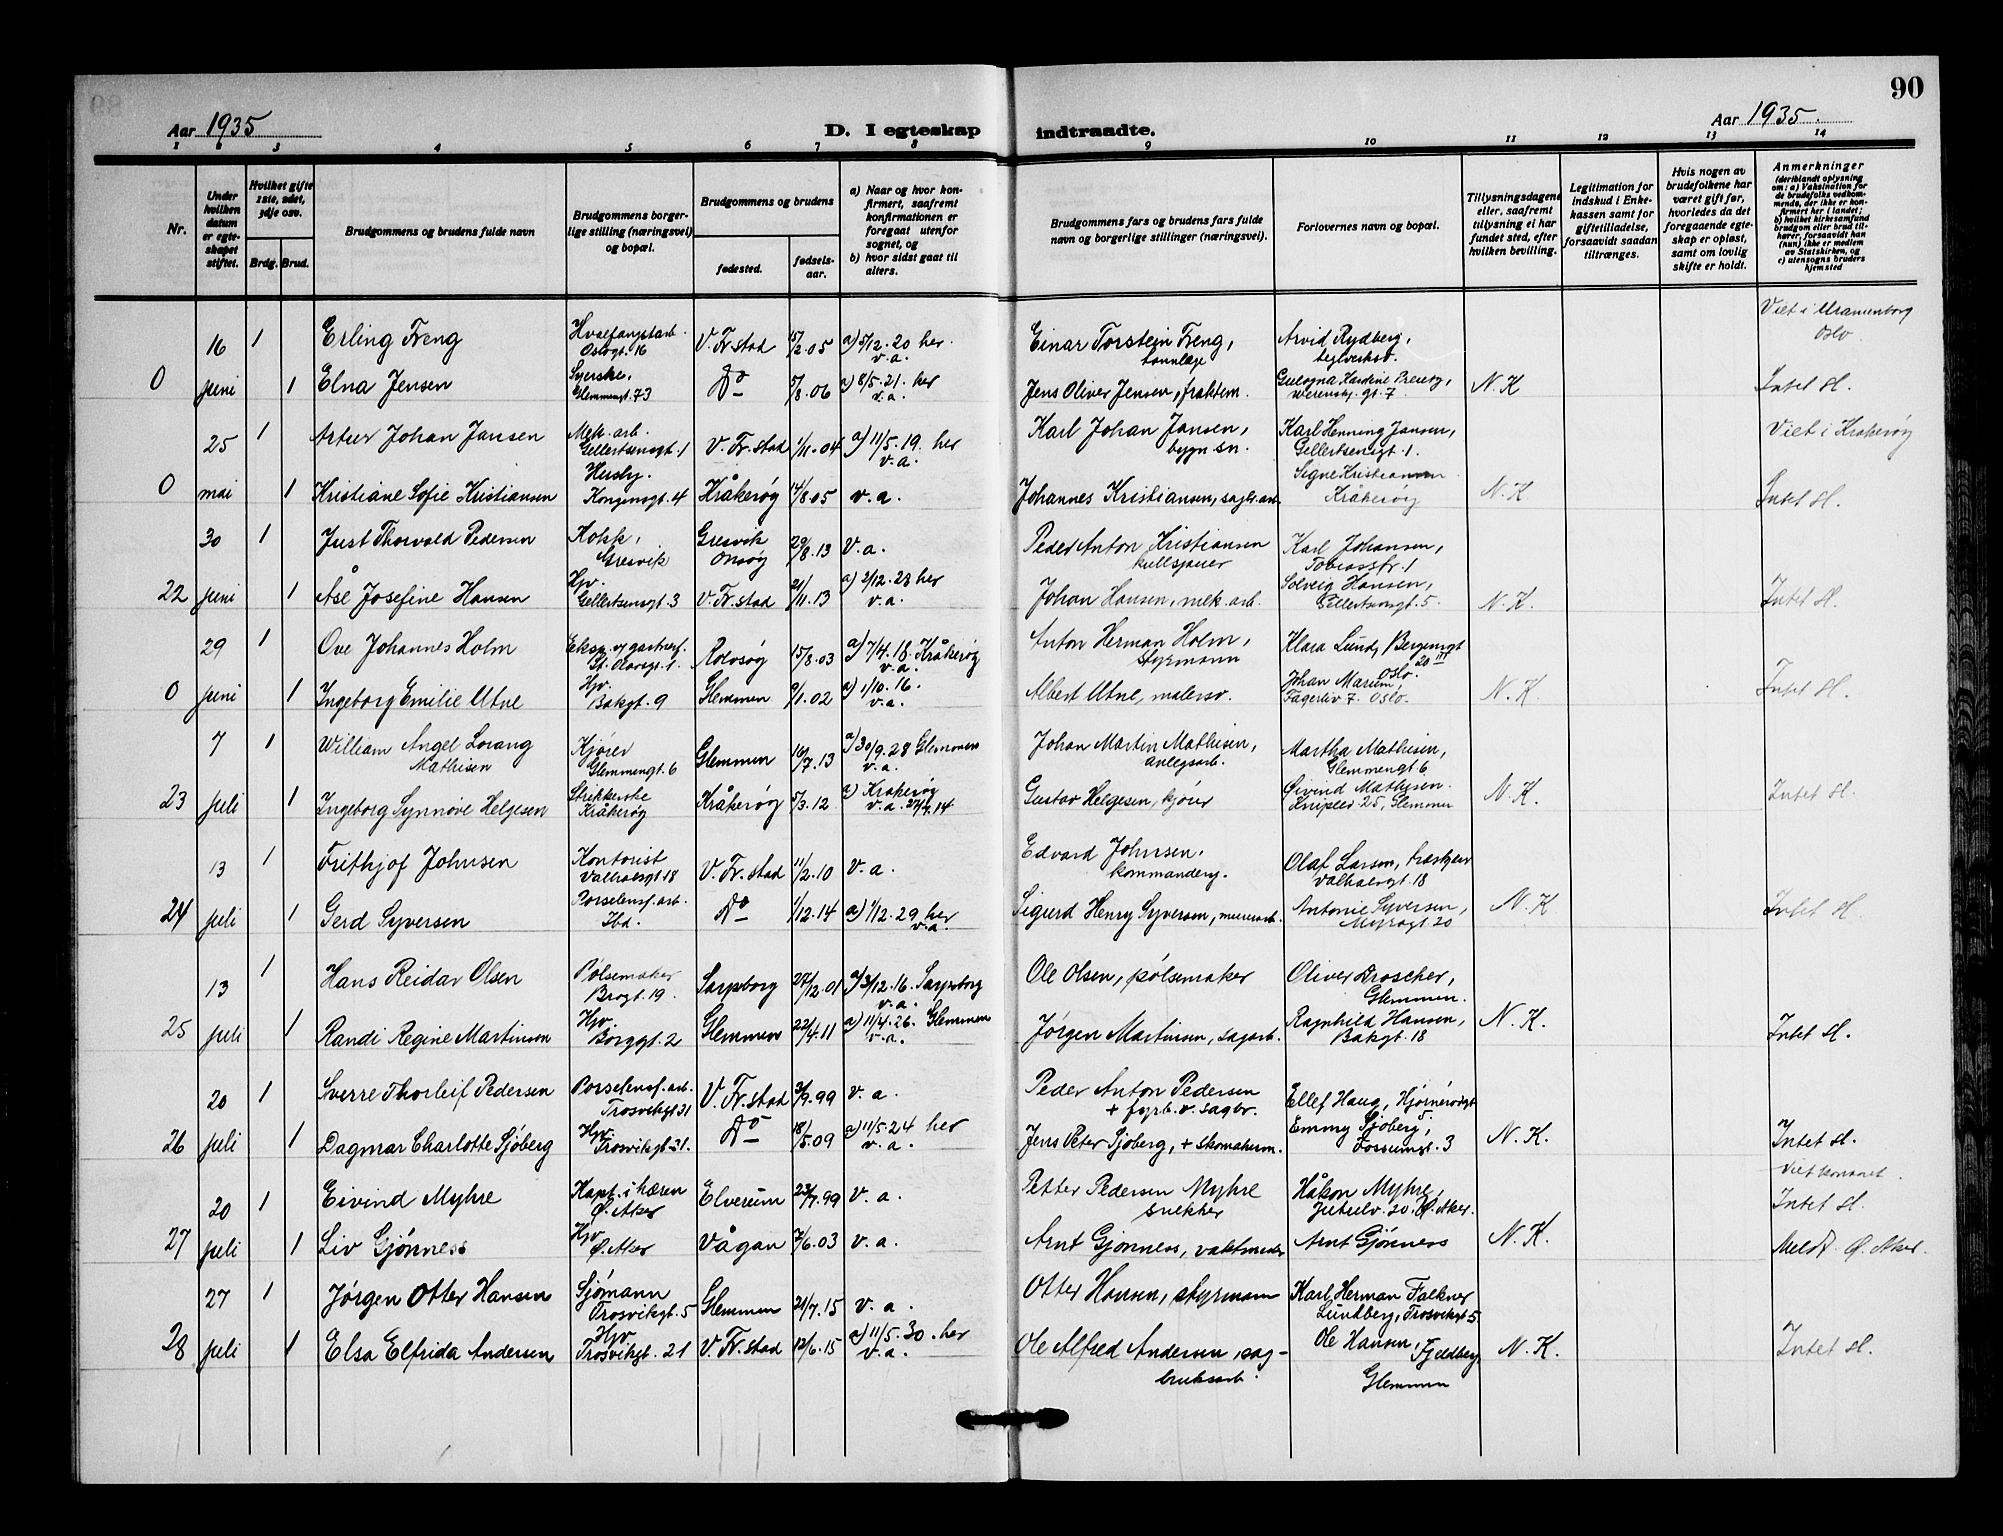 90
Aar 1935
D. I egteskap indtraadte.
Aar 1935.
1 2 3 4 5 6 7 8 9 10 11 12 13 14
Nr.
Under hvilken datum er egteskapet stiftet.
Hvilket gifte 1ste, 2det, 3dje osv.
Brdg. Brud.
Brudgommens og brudens fulde navn
Brudgommens borgerlige stilling (næringsvei) og bopæl.
Brudgommens og brudens
fødested. fødselsaar.
a) Naar og hvor konfirmert, saafremt konfirmationen er foregaat utenfor sognet, og
b) hvor sidst gaat til alters.
Brudgommens fars og brudens fars fulde navn og borgerlige stillinger (næringsvei).
Forlovernes navn og bopæl.
Tillysningsdagene eller, saafremt tillysning ei har fundet sted, efter hvilken bevilling.
Legitimation for indskud i Enkekassen samt for giftetilladelse, forsaavidt saadan tiltrænges.
Hvis nogen av brudefolkene har været gift før, hvorledes da det foregaaende egteskap er opløst, samt om lovlig skifte er holdt.
Anmerkninger (deriblandt oplysning om: a) Vaksination for de brudefolks vedkommende, der ikke er konfirmert her i landet; b) hvilket kirkesamfund brudgom eller brud tilhører, forsaavidt han (hun) ikke er medlem av Statskirken, og c) utensogns bruders hjemsted
16 1 Erling Freng Hvalfangstarb. Oslogt. 16 V. Fr.stad 15/2.05 a) 5/12.20 her. v.a. Einar Torstein Freng, tannlæge Arvid Rydberg, teglverksd. Viet i Uranienborg Oslo
0 juni 1 Elna Jensen Syerske, Glemmengt. 73 Do 5/8.06 a) 8/5.21. her v.a. Jens Oliver Jensen, fraktem. N.K Intet H.
25 1 Artur Johan Jansen Mek. arb. Gellertsensgt. 1 V. Fr.stad 1/11.04 a) 11/5.19. her v.a. Karl Johan Jansen, bygn sn. Karl Henning Jansen, Gellertsensgt. 1. Viet i Kråkerøy
0 mai 1 Kristiane Sofie Kristiansen Husby. Kongensgt. 4 Kråkerøy 4/8.05 v.a. Johannes Kristiansen, sagbr.arb. Signe Kristiansen Kråkerøy N.K Intet H.
30 1 Just Thorvald Pedersen Kokk, Gresvik Gresvik Onsøy 29/8.13 v.a. Peder Anton Kristiansen kullsjauer Karl Johansen, Tobiasstr. 1
22 juni 1 Åse Josefine Hansen Hjv. Gellertsensgt. 3 V. Fr.stad 21/11.13 a) 2/12.28 her v.a. Johan Hansen, mek. arb. Solveig Hansen, Gellertsensgt. 5. N.K. Intet H.
29 1 Ove Johannes Holm Eksp. og gartnerf. St. Olavsgt. 1. Rolvsøy 15/8.03 a) 7/4.18. Kråkerøy v.a. Anton Herman Holm, styrmann Klara Lund, Bergensgt 20 III Oslo.
0 juni 1 Ingeborg Emilie Utne Hjv. Bakgt. 9 Glemmen 9/1.02 a) 1/10.16. v.a. Albert Utne, malersv. Johan Marum, Fagerliv 7. Oslo. N.K. Intet H.
7 1 William Angel Lorang Mathisen Kjører Glemmengt. 6 Glemmen 16/7.13 a) 30/9.28 Glemmen v.a. Johan Martin Mathisen, anlegsarb. Martha Mathisen, Glemmengt 6
23 juli 1 Ingeborg Synnøve Helgesen Strikkerske Kråkerøy Kråkerøy 5/3.12 a) Kråkerøy v.a. Gustav Helgesen, kjører Øivind Mathisen. 25, Glemmen N.K. Intet H.
13 1 Frithjof Johnsen Kontorist Valhalsgt 18 V. Fr. stad 11/2.10 v.a. Edvard Johnsen, kommandersj. Olaf Larsen, Valhalsgt. 18
24 juli 1 Gerd Syversen Porselensf. arb. Ibd. Do 1/12.14 a) 1/12.29, her v.a. Sigurd Henry Syversen, murerarb. Antonie Syversen, Myragt. 20 N.K. Intet H.
13 1 Hans Reidar Olsen Pølsemaker Brogt. 19. Sarpsborg 27/12.01 a) 3/12.16. Sarpsborg v.a. Ole Olsen, pølsemaker Oliver Droscher, Glemmen.
25 juli 1 Randi Regine Martinsen Hjv. Borggt. 2 Glemmen 22/4.11 a) 11/4.26. Glemmen v.a. Jørgen Martinsen, sagarb. Ragnhild Hansen, Bakgt. 18 N.K. Intet H.
20 1 Sverre Thorleif Pedersen Porselensf. arb. Trosvikgt 31 V. Fr. stad 3/9.99 v.a. Peder Anton Pedersen + fyrb. v. sagbr. Ellef Haug, Hjørnerødgt 5.
26 juli 1 Dagmar Charlotte Sjöberg Hjv. Trosvikgt. 31. Do 18/5.09 a) 11/5.24 her v.a. Jens Peter Sjöberg, + skomakerm. Emmy Sjöberg, Fossumgt. 3 N.K. Intet H.
20 1 Eivind Myhre Kapt. i hæren Ø. Aker Elverum 23/7.99 v.a. Petter Pedersen Myhre snekker Håkon Myhre, Jutulv. 20. Ø. Aker. Intet H.
27 juli 1 Liv Gjønness Hjv Ø. Aker Vågan 7/6.03 v.a. Arnt Gjønness, vaktmester Arnt Gjønness N.K. Meldt Ø. Aker.
27 1 Jørgen Otter Hansen Sjømann Trosvikgt. 5 Glemmen 21/7.15 v.a. Otter Hansen, styrmann Karl Herman Falkner Lundberg, Trosvikgt 5.
28 juli 1 Elsa Elfrida Andersen Hjv Trosvikgt. 21 V. Fr. stad 12/6.15 a) 11/5.30. her v.a. Ole Alfred Andersen, sagbruksarb. Ole Hansen, Fjeldberg, Glemmen N.K. Intet H.